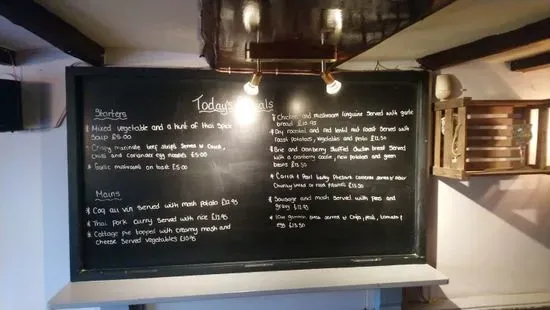 Today's
Starters
* Mixed vegetable and a hint of Thai Spice
Soup £5.00
Crispy marinate beef strips Served w
Chilli and coriander egg noodles £5.00
* Garlic mushroom on toast £5.00
Mains
* Coq au vin Served with mash potato £12.95
* Thai pork curry Served with rice £12.95
* Cottage pie topped with creamy mash and
cheese Served vegetables £10.95
* Chicken and mushroom linguine Served with garlic
bread £10.95
* Dry roasted and red lentil nut roast Served with
roast potatoes, vegetables and pesto £12.50
* Brie and cranberry stuffed chicken breast Served
with a cranberry coulis, new potatoes and green
beans £13.50
* Carrot & Pearl barley
£13.50
* Sausage and mash Served with peas and
gravy £12.95
* gammon Served w chips, peas, tomato &
egg £13.50